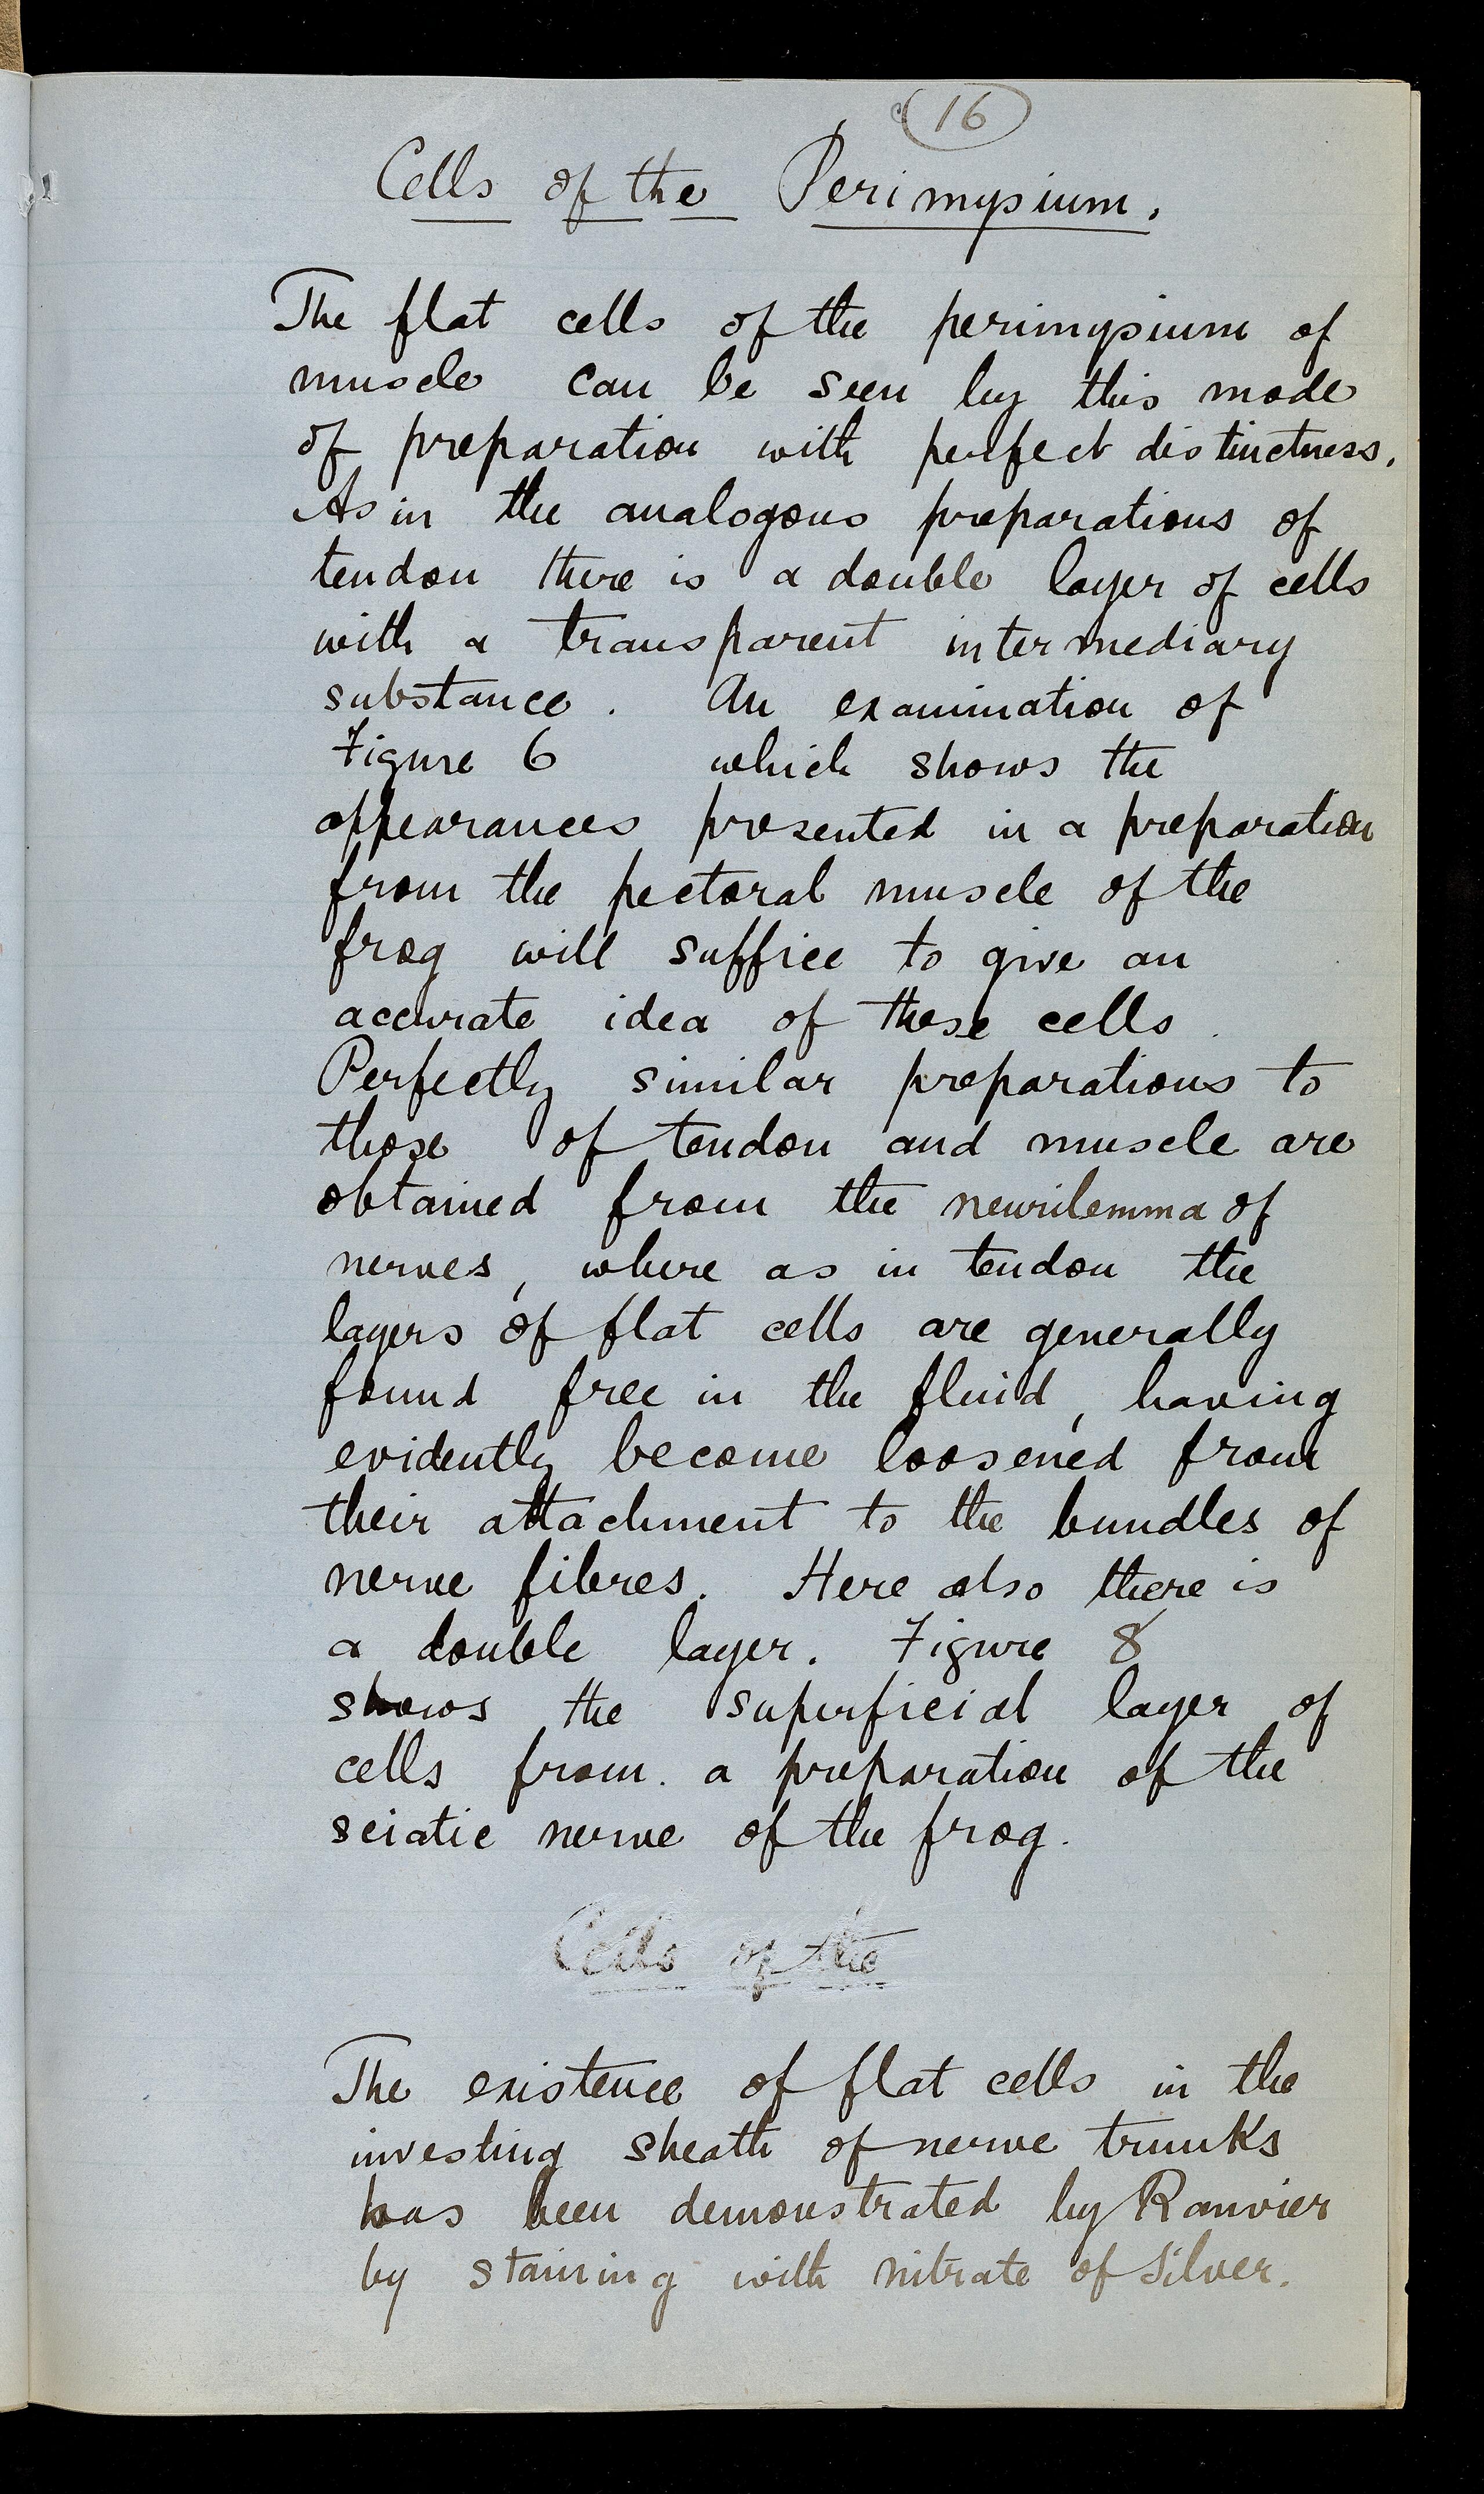 16
Cells of the Perimysium.
The flat cells of the perimysium of
muscle can be seen by this mode
of preparation with perfect distinctness.
As in the analogous preparations of
tendon there is a double layer of cells
with a transparent intermediary
substance. An examination of
Figure 6 which shows the
appearances presented in a preparation
from the pectoral muscle of the
frog will suffice to give an
accurate idea of these cells.
Perfectly similar preparations to
those of tendon and muscle are
obtained from the neurilemma of
nerves, where as in tendon the
layers of flat cells are generally
found free in the fluid, having
evidently become loosened from
their attachment to the bundles of
nerve fibres. Here also there is
a double layer. Figure 8
shows the superficial layer of
cells from a preparation of the
sciatic nerve of the frog.
Cells of the
The existence of flat cells in the
investing sheath of nerve trunks
has been demonstrated by Ranvier
by staining with nitrate of Silver.